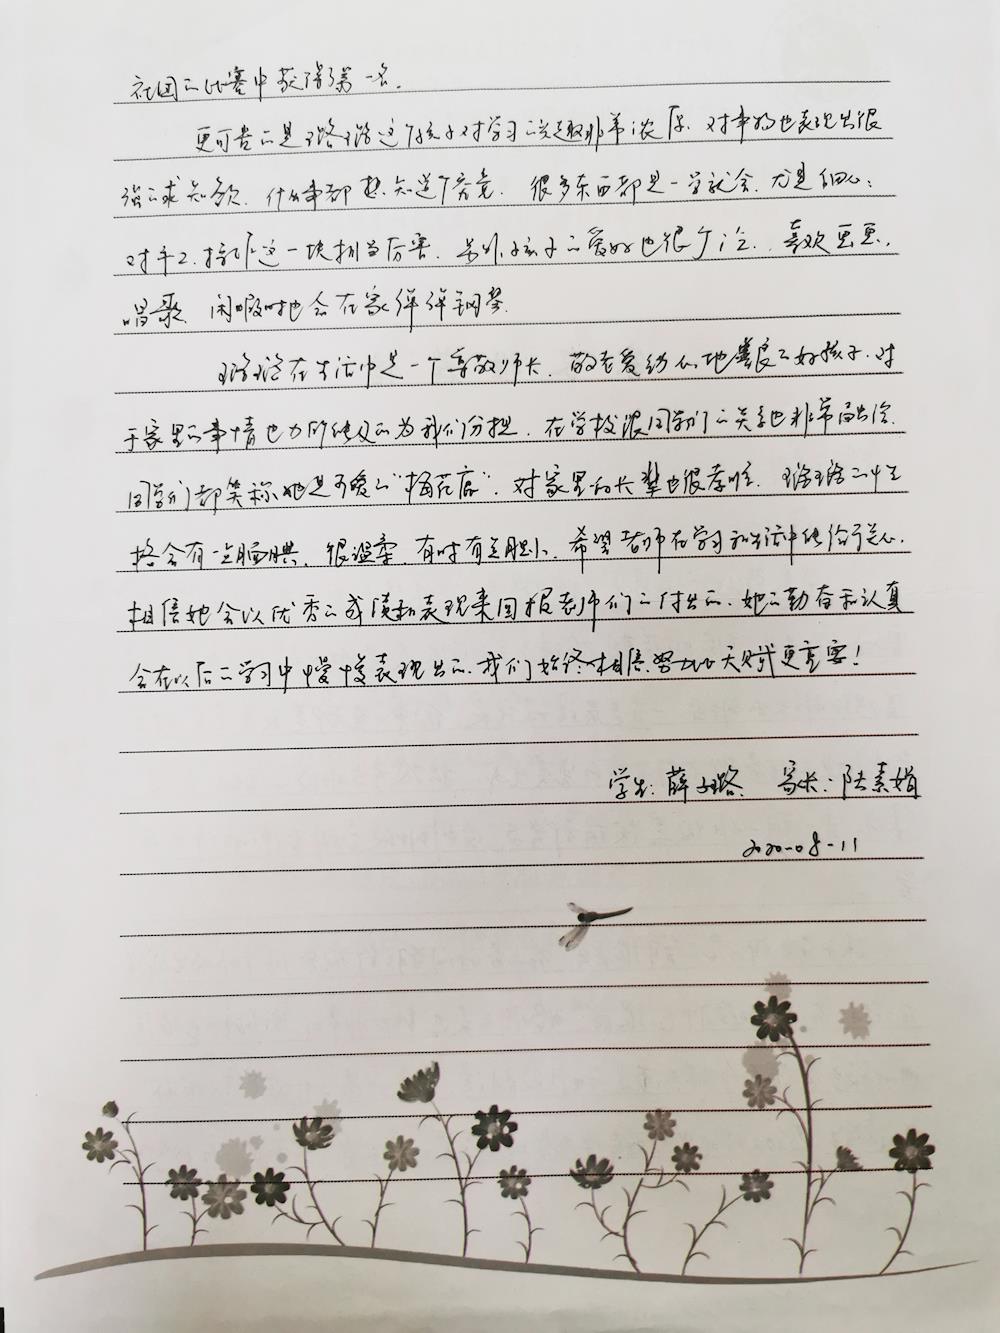 社团的比赛中获得第一名。
更可贵的是璐璐这个孩子对学习兴趣非常浓厚，对事物也表现出很
强的求知欲，什么事都想知道个究竟，很多东西都是一学就会，尤是细心，
对手工、操作这一块相当厉害，另外，孩子的爱好也很广泛，喜欢画画，
唱歌，闲暇时也会在家弹弹钢琴。
璐璐在生活中是一个尊敬师长，敬老爱幼，心地善良的好孩子，对
于家里的事情也力所能及的为我们分担，在学校跟同学们的关系也非常融洽，
同学们都笑称她是可爱的“梅花鹿”，对家里的长辈也很孝顺，璐璐的性
格会有一点腼腆，很温柔，有时有点胆小，希望老师在学习和生活中能给予关心，
相信她会以优秀的成绩和表现来回报老师们的付出的，她的勤奋和认真
会在以后的学习中慢慢表现出的，我们始终相信，努力比天赋更重要！
学生：薛璐 家长：陆素娟
2020-08-11